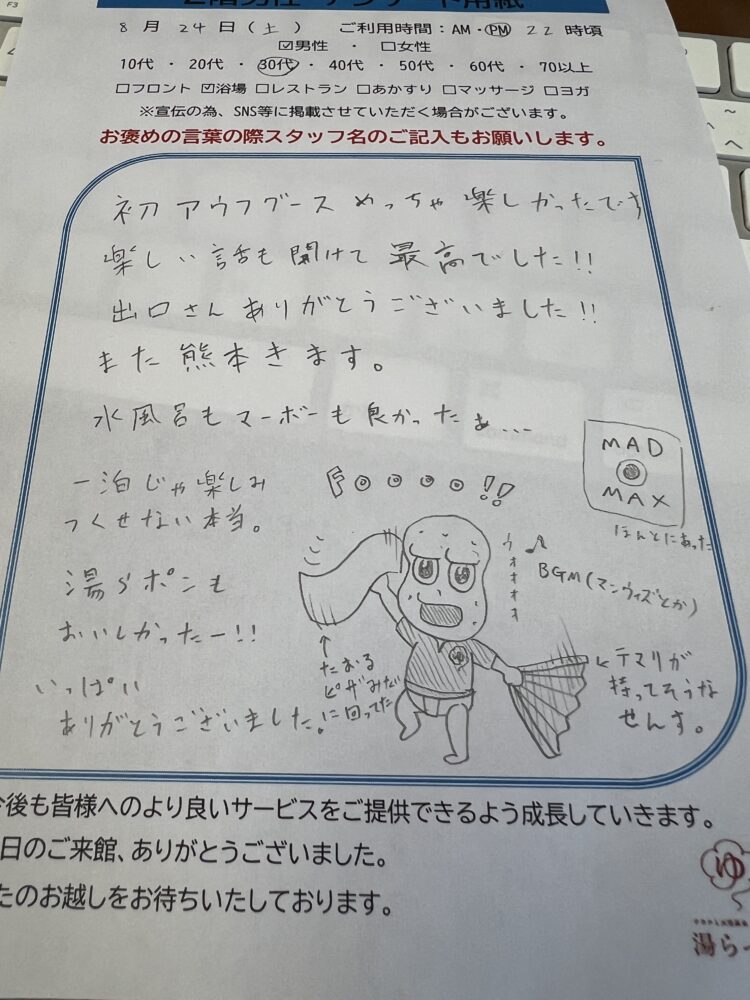 2階男性 アンケート用紙
8月24日(土) ご利用時間:AM・PM 22時頃
☑男性 ・ □女性
10代 ・ 20代 ・ 30代 ・ 40代 ・ 50代 ・ 60代 ・ 70以上
□フロント ☑浴場 □レストラン □あかすり □マッサージ □ヨガ
※宣伝の為、SNS等に掲載させていただく場合がございます。
お褒めの言葉の際スタッフ名のご記入もお願いします。
初アウフグース めっちゃ楽しかったです
楽しい話も聞けて最高でした!!
出口さんありがとうございました!!
また熊本きます。
水風呂もマーボーも良かったぁ...
一泊じゃ楽しみ
つくせない本当。
湯らポンも
おいしかったー!!
いっぱい
ありがとうございました。
MAD
MAX
ほんとにあった
ウォオオオ
♪
BGM(マンウィズとか)
↑
たおる
ピザみたい
に回ってた
←テマリが
持ってそうな
せんす。
今後も皆様へのより良いサービスをご提供できるよう成長していきます。
日のご来館、ありがとうございました。
たのお越しをお待ちいたしております。
ゆ
湯ら